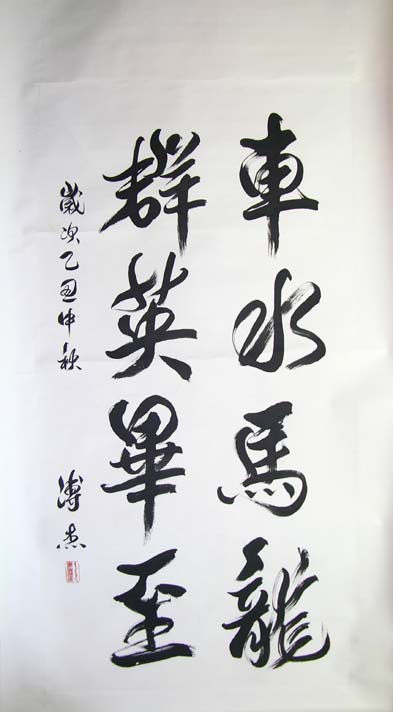 車水馬龍
群英畢至
歲次乙丑中秋
溥杰